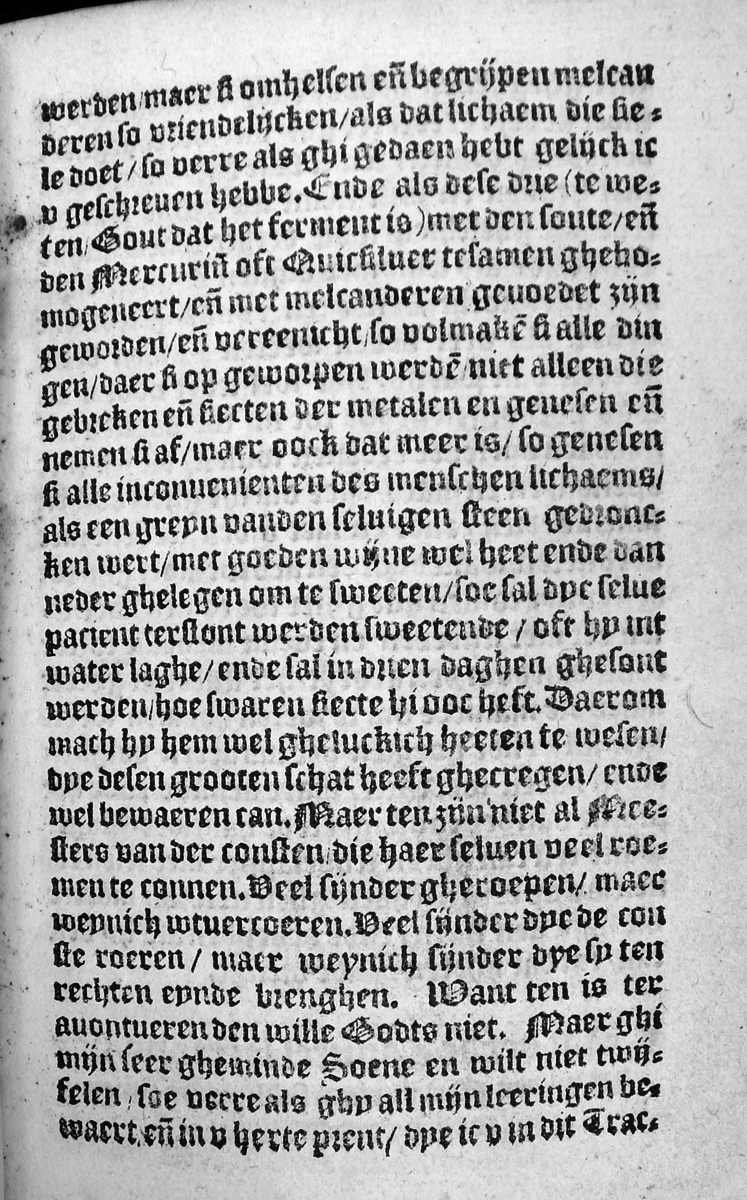 werden/maer si omhelsen eñ begrijpen melcan
deren so vriendelijcken/als dat lichaem die sie-
le doet/so verre als ghi gedaen hebt gelijck ic
v geschreuen hebbe. Ende als dese drie (te we-
ten/Gout dat het ferment is) met den soute/eñ
den Mercuriũ oft Quicsiluer tesamen ghého-
mogeneert/eñ met melcanderen geuoedet zijn
geworden/eñ vereenicht/so volmakẽ si alle din
gen/daer si op geworpen werdẽ/niet alleen die
gebreken eñ siecten der metalen en genesen eñ
nemen si af/maer oock dat meer is/so genesen
si alle inconuenienten des menschen lichaems/
als een greyn vanden seluigen steen gedronc-
ken wert/met goeden wijne wel heet ende dan
neder ghelegen om te sweeten/soe sal dye selue
pacient terstont werden sweetende/oft hy int
water laghe/ende sal in drien daghen ghesont
werden/hoe swaren siecte hi ooc heft. Daerom
mach hy hem wel gheluckich heeten te wesen/
dye desen grooten schat heeft ghecregen/ende
wel bewaeren can. Maer ten zijn niet al Mee-
sters van der consten/die haer seluen veel roe-
men te connen. Veel sijnder gheroepen/ maer
weynich wtuercoeren. Veel sijnder dye de con
ste roeren/ maer weynich sijnder dye sy ten
rechten eynde brenghen. Want ten is ter
auontueren den wille Godts niet. Maer ghi
mijn seer gheminde Soene en wilt niet twij-
felen/soe verre als ghy all mijn leeringen be-
waert/eñ in v herte prent/ dye ic v in dit Trac-